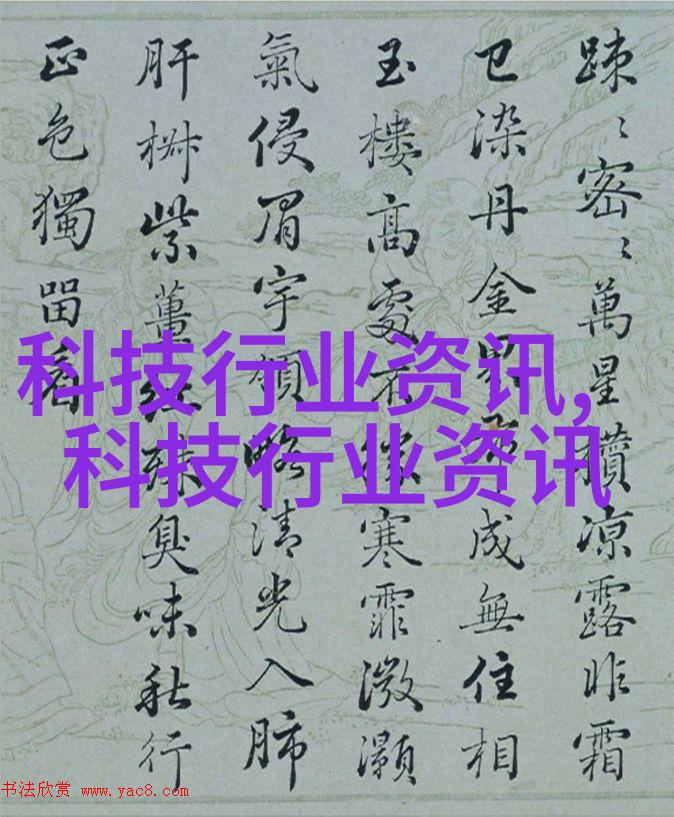 踈〻密〻萬星攢凉露昨霜
已染丹金成無住相
玉樓高處不寒霏溦灝
氣侵眉宇領略清光入肺
肝椒紫薑殊臭味秋行
正色獨留看
科技行业资讯,
科技行业资讯
书法欣赏 www.yac8.com